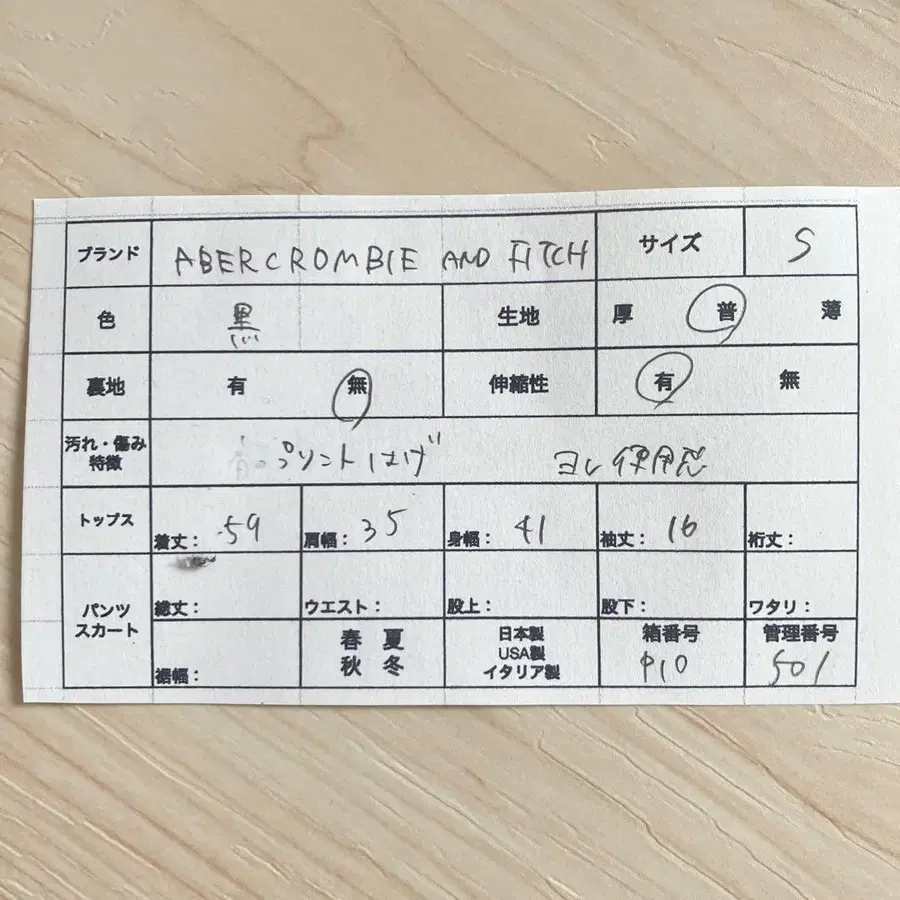 ブランド ABERCROMBIE AND FITCH サイズ S
色 黒 生地 厚 普 薄
裏地 有 無 伸縮性 有 無
汚れ・傷み
特徴 プリントはげ ヨレ 使用感
トップス 着丈: 59 肩幅: 35 身幅: 41 袖丈: 16 裄丈:
パンツ
スカート 総丈: ウエスト: 股上: 股下: ワタリ:
裾幅: 春 夏
秋 冬 日本製
USA製
イタリア製 箱番号
P10 管理番号
501